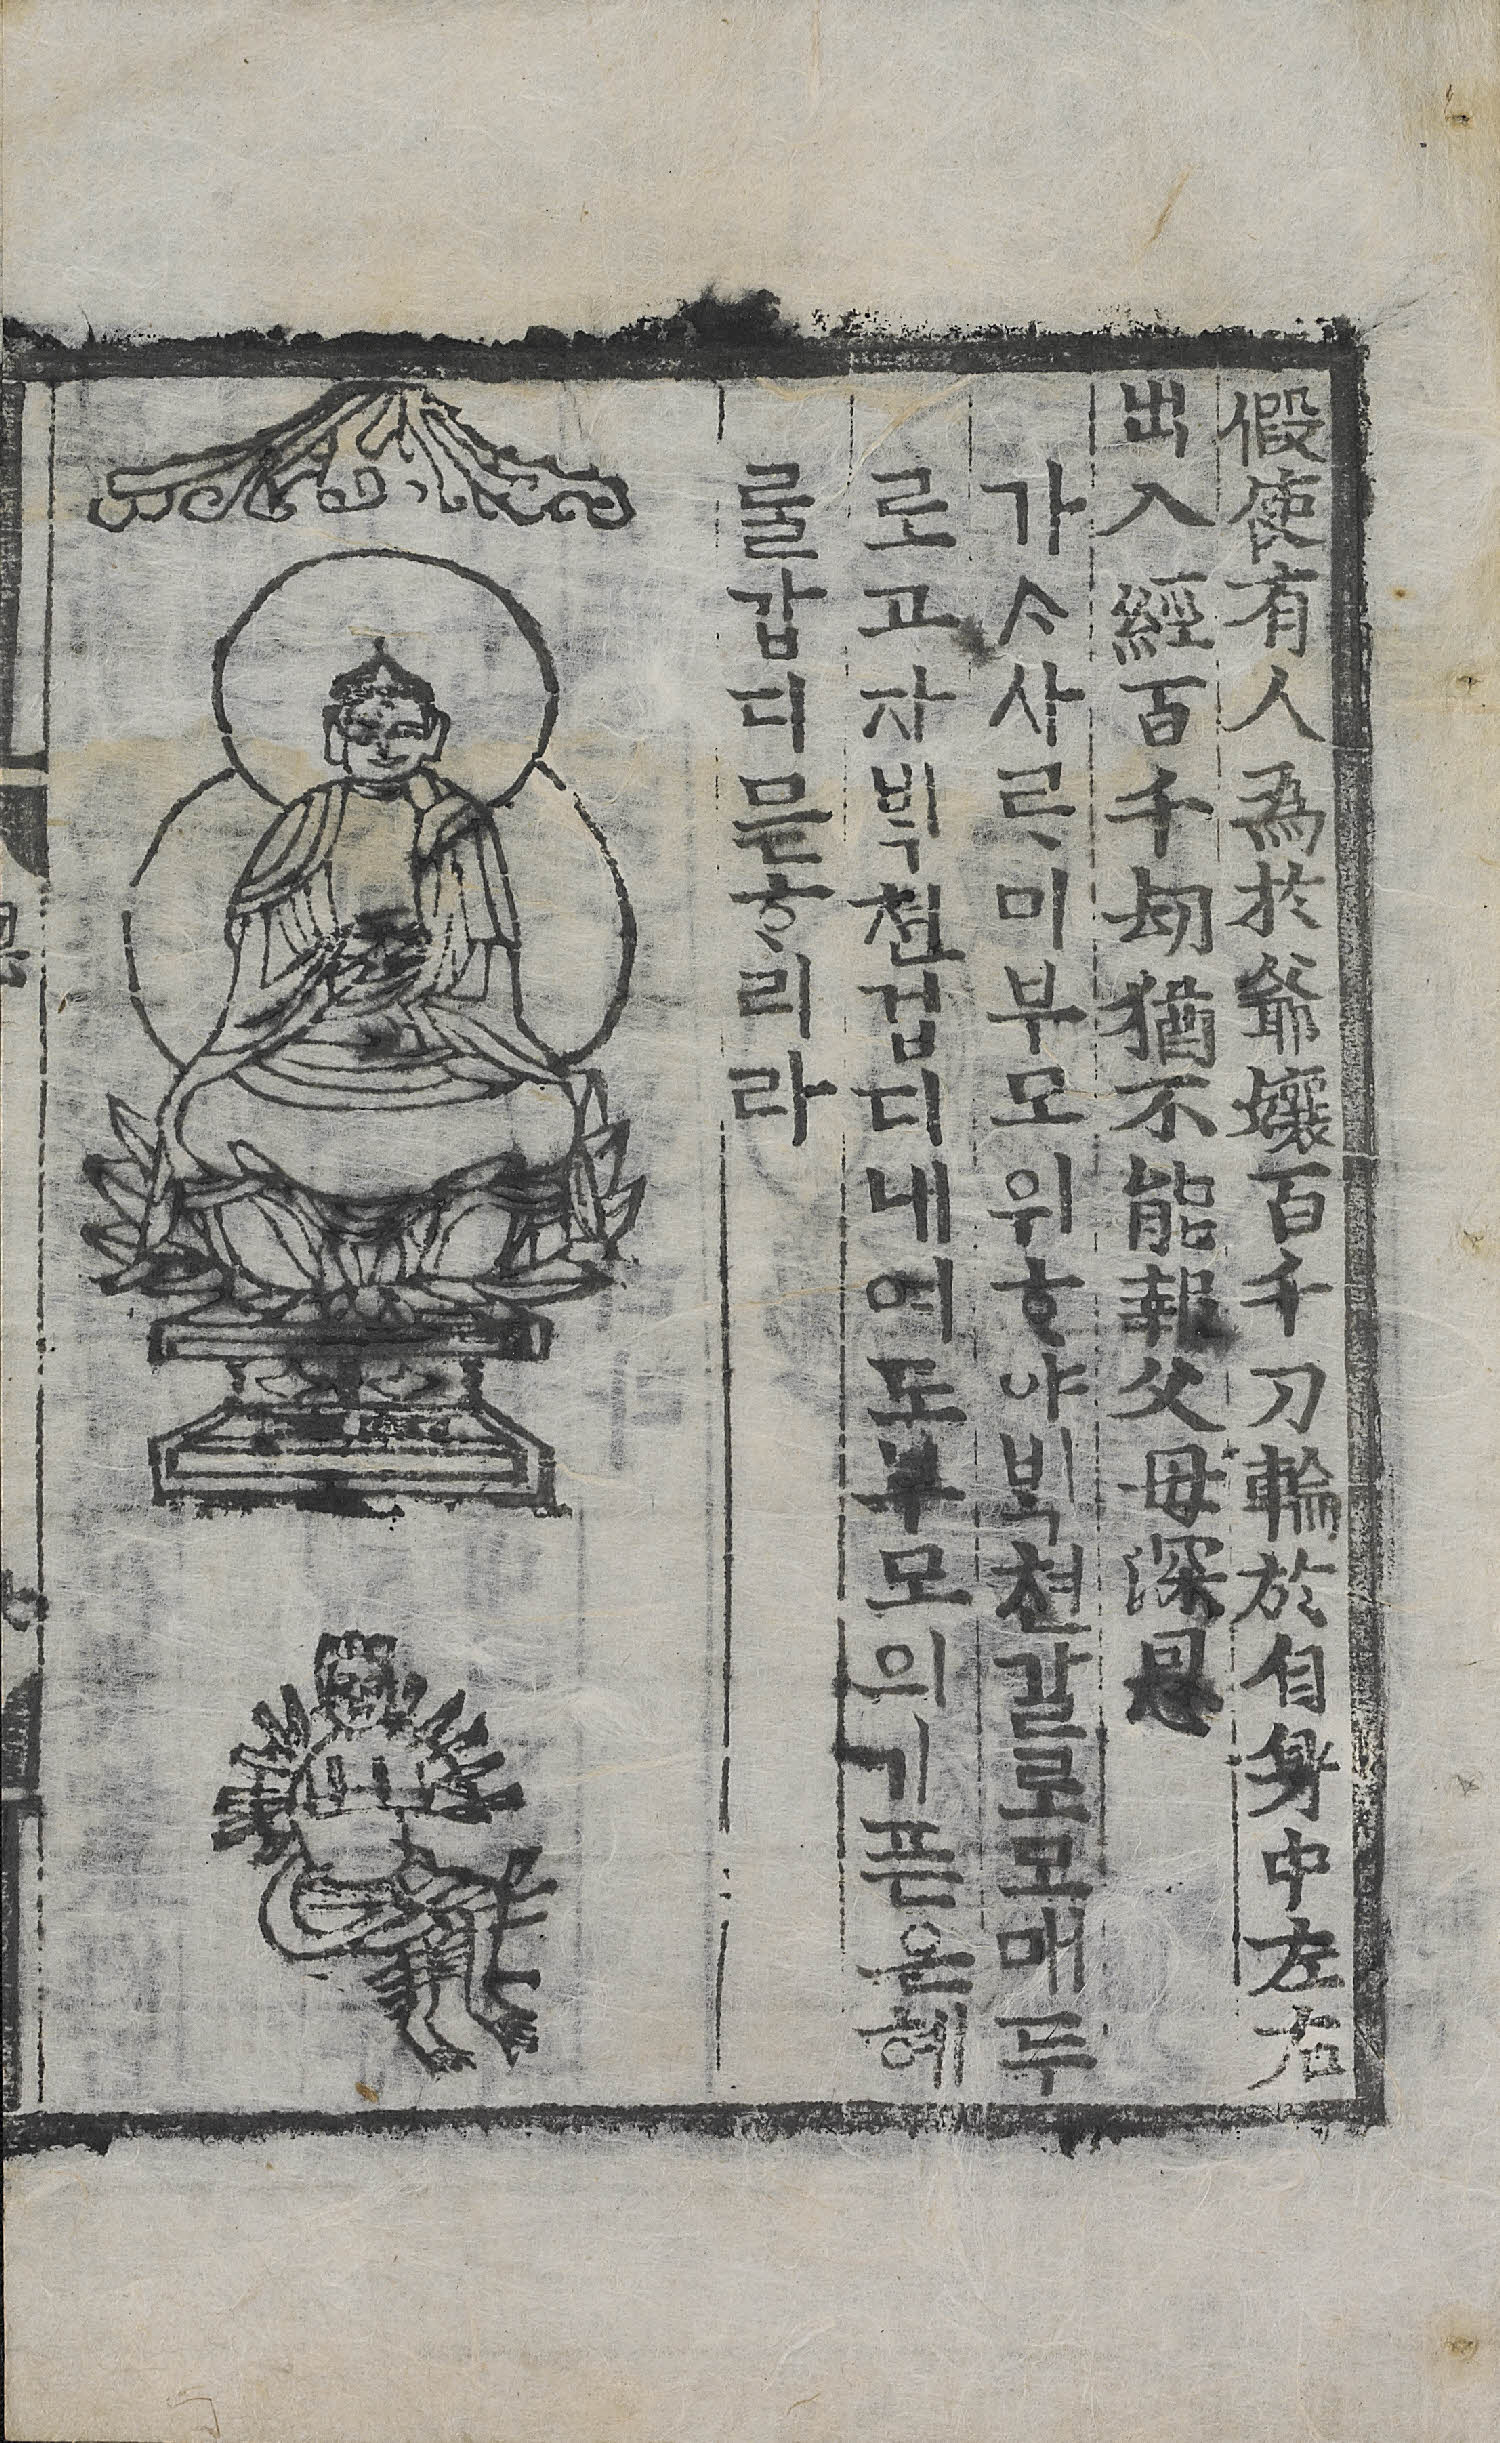 假使有人爲於爺孃百千刀輪於自身中左右
出入經百千劫猶不能報父母深恩
가ᄉᆞ사ᄅᆞ미부모위ᄒᆞ야ᄇᆡᆨ쳔갈로모매두
로고자ᄇᆡᆨ쳔겁디내여도부모의기픈은혜
ᄅᆞᆯ갑디몯ᄒᆞ리라